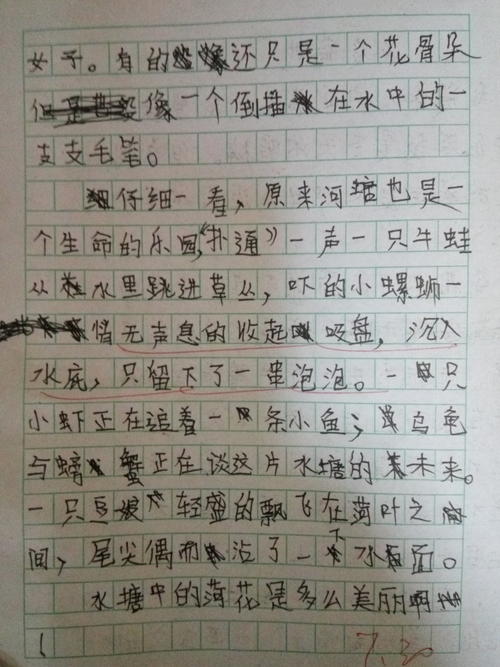 女子。有的还只是一个花骨朵
像一个倒插在水中的一
支支毛笔。
仔细一看，原来河塘也是一
个生命的乐园，“扑通”一声一只牛蛙
从水里跳进草丛，吓的小螺蛳一
悄无声息的收起吸盘，沉入
水底，只留下了一串泡泡。一只
小虾正在追着一条小鱼；乌龟
与螃蟹正在谈这片水塘的未来。
一只豆娘轻盛的飘飞在荷叶之
间，尾尖偶而沾了一下水面。
水塘中的荷花是多么美丽啊
！
7.30